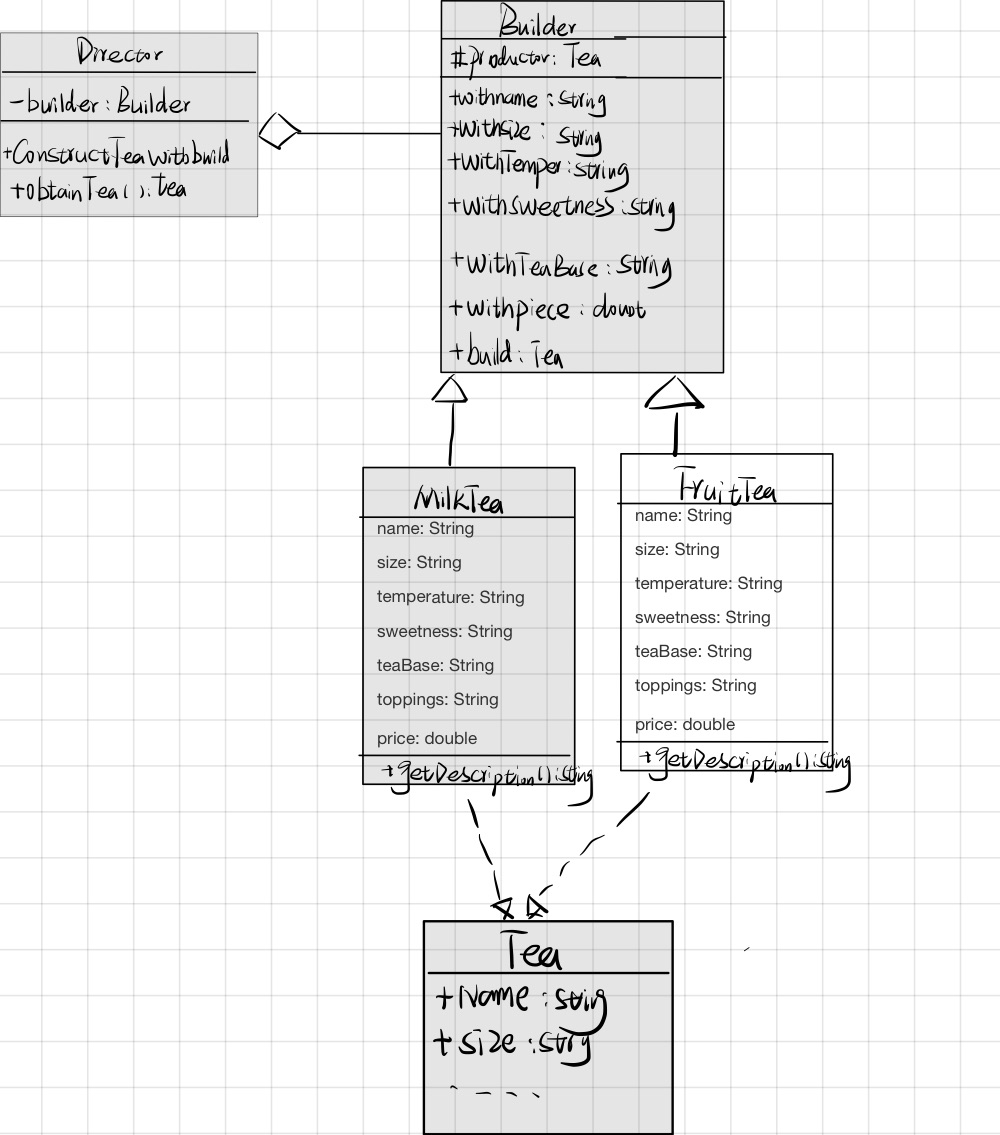 Director
-builder: Builder
+ConstructTeawithbuild
+obtainTea(): tea
Builder
#productor: Tea
+withname: string
+withsize: string
+withTemper: string
+withsweetness: string
+withTeaBase: string
+withpiece:
+build: Tea
MilkTea
name: String
size: String
temperature: String
sweetness: String
teaBase: String
toppings: String
price: double
+getDescription():
FruitTea
name: String
size: String
temperature: String
sweetness: String
teaBase: String
toppings: String
price: double
+getDescription():
Tea
+Name:
+size: